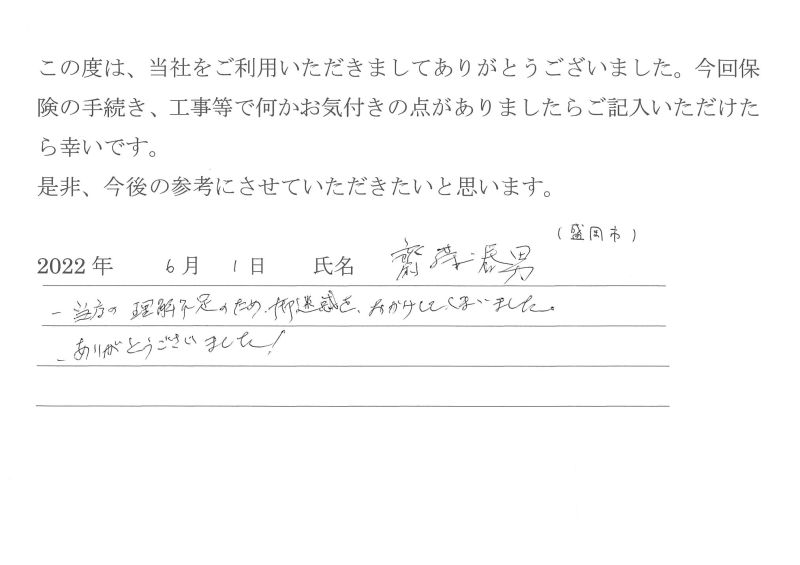 この度は、当社をご利用いただきましてありがとうございました。今回保
険の手続き、工事等で何かお気付きの点がありましたらご記入いただけた
ら幸いです。
是非、今後の参考にさせていただきたいと思います。
(盛岡市)
2022年 6月 1日 氏名 男
- 当方の理解不足のため、御迷惑を、おかけしてしまいました。
- ありがとうございました!